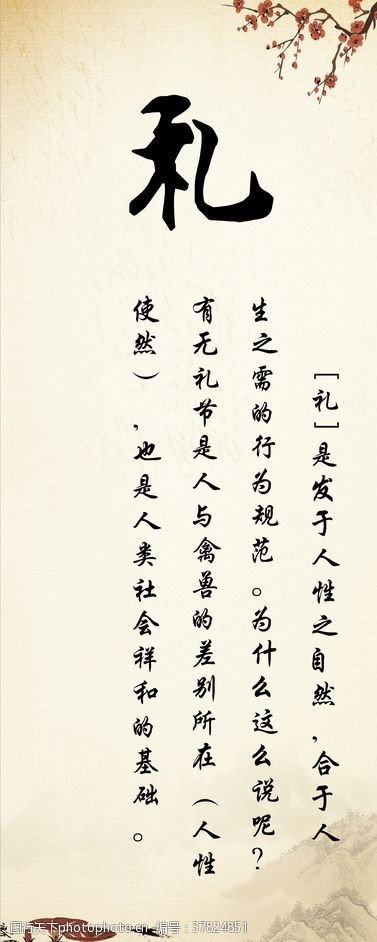 礼
［礼］是发于人性之自然，合于人
生之需的行为规范。为什么这么说呢？
有无礼节是人与禽兽的差别所在（人性
使然），也是人类社会祥和的基础。
图行天下photophoto.cn 编号：37824851